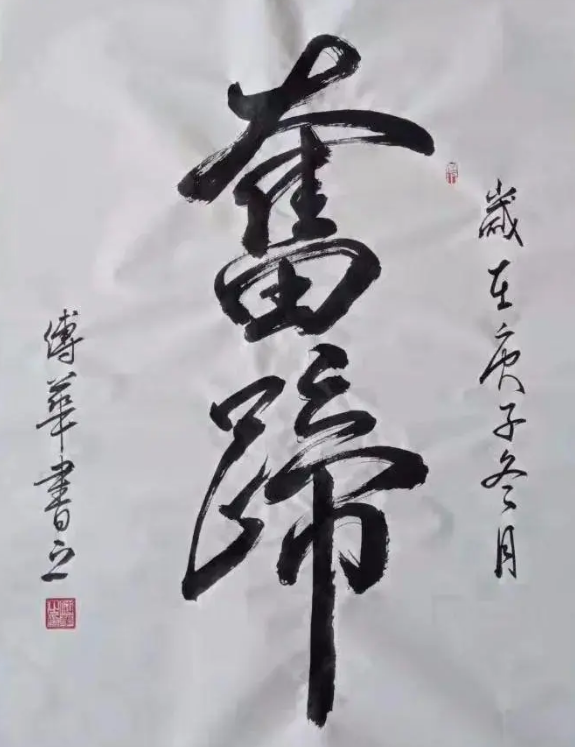 歲在庚子冬月
奮蹄
傅華書之